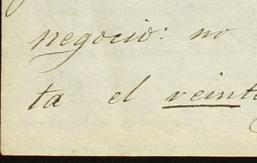 negocio: no
ta el veint